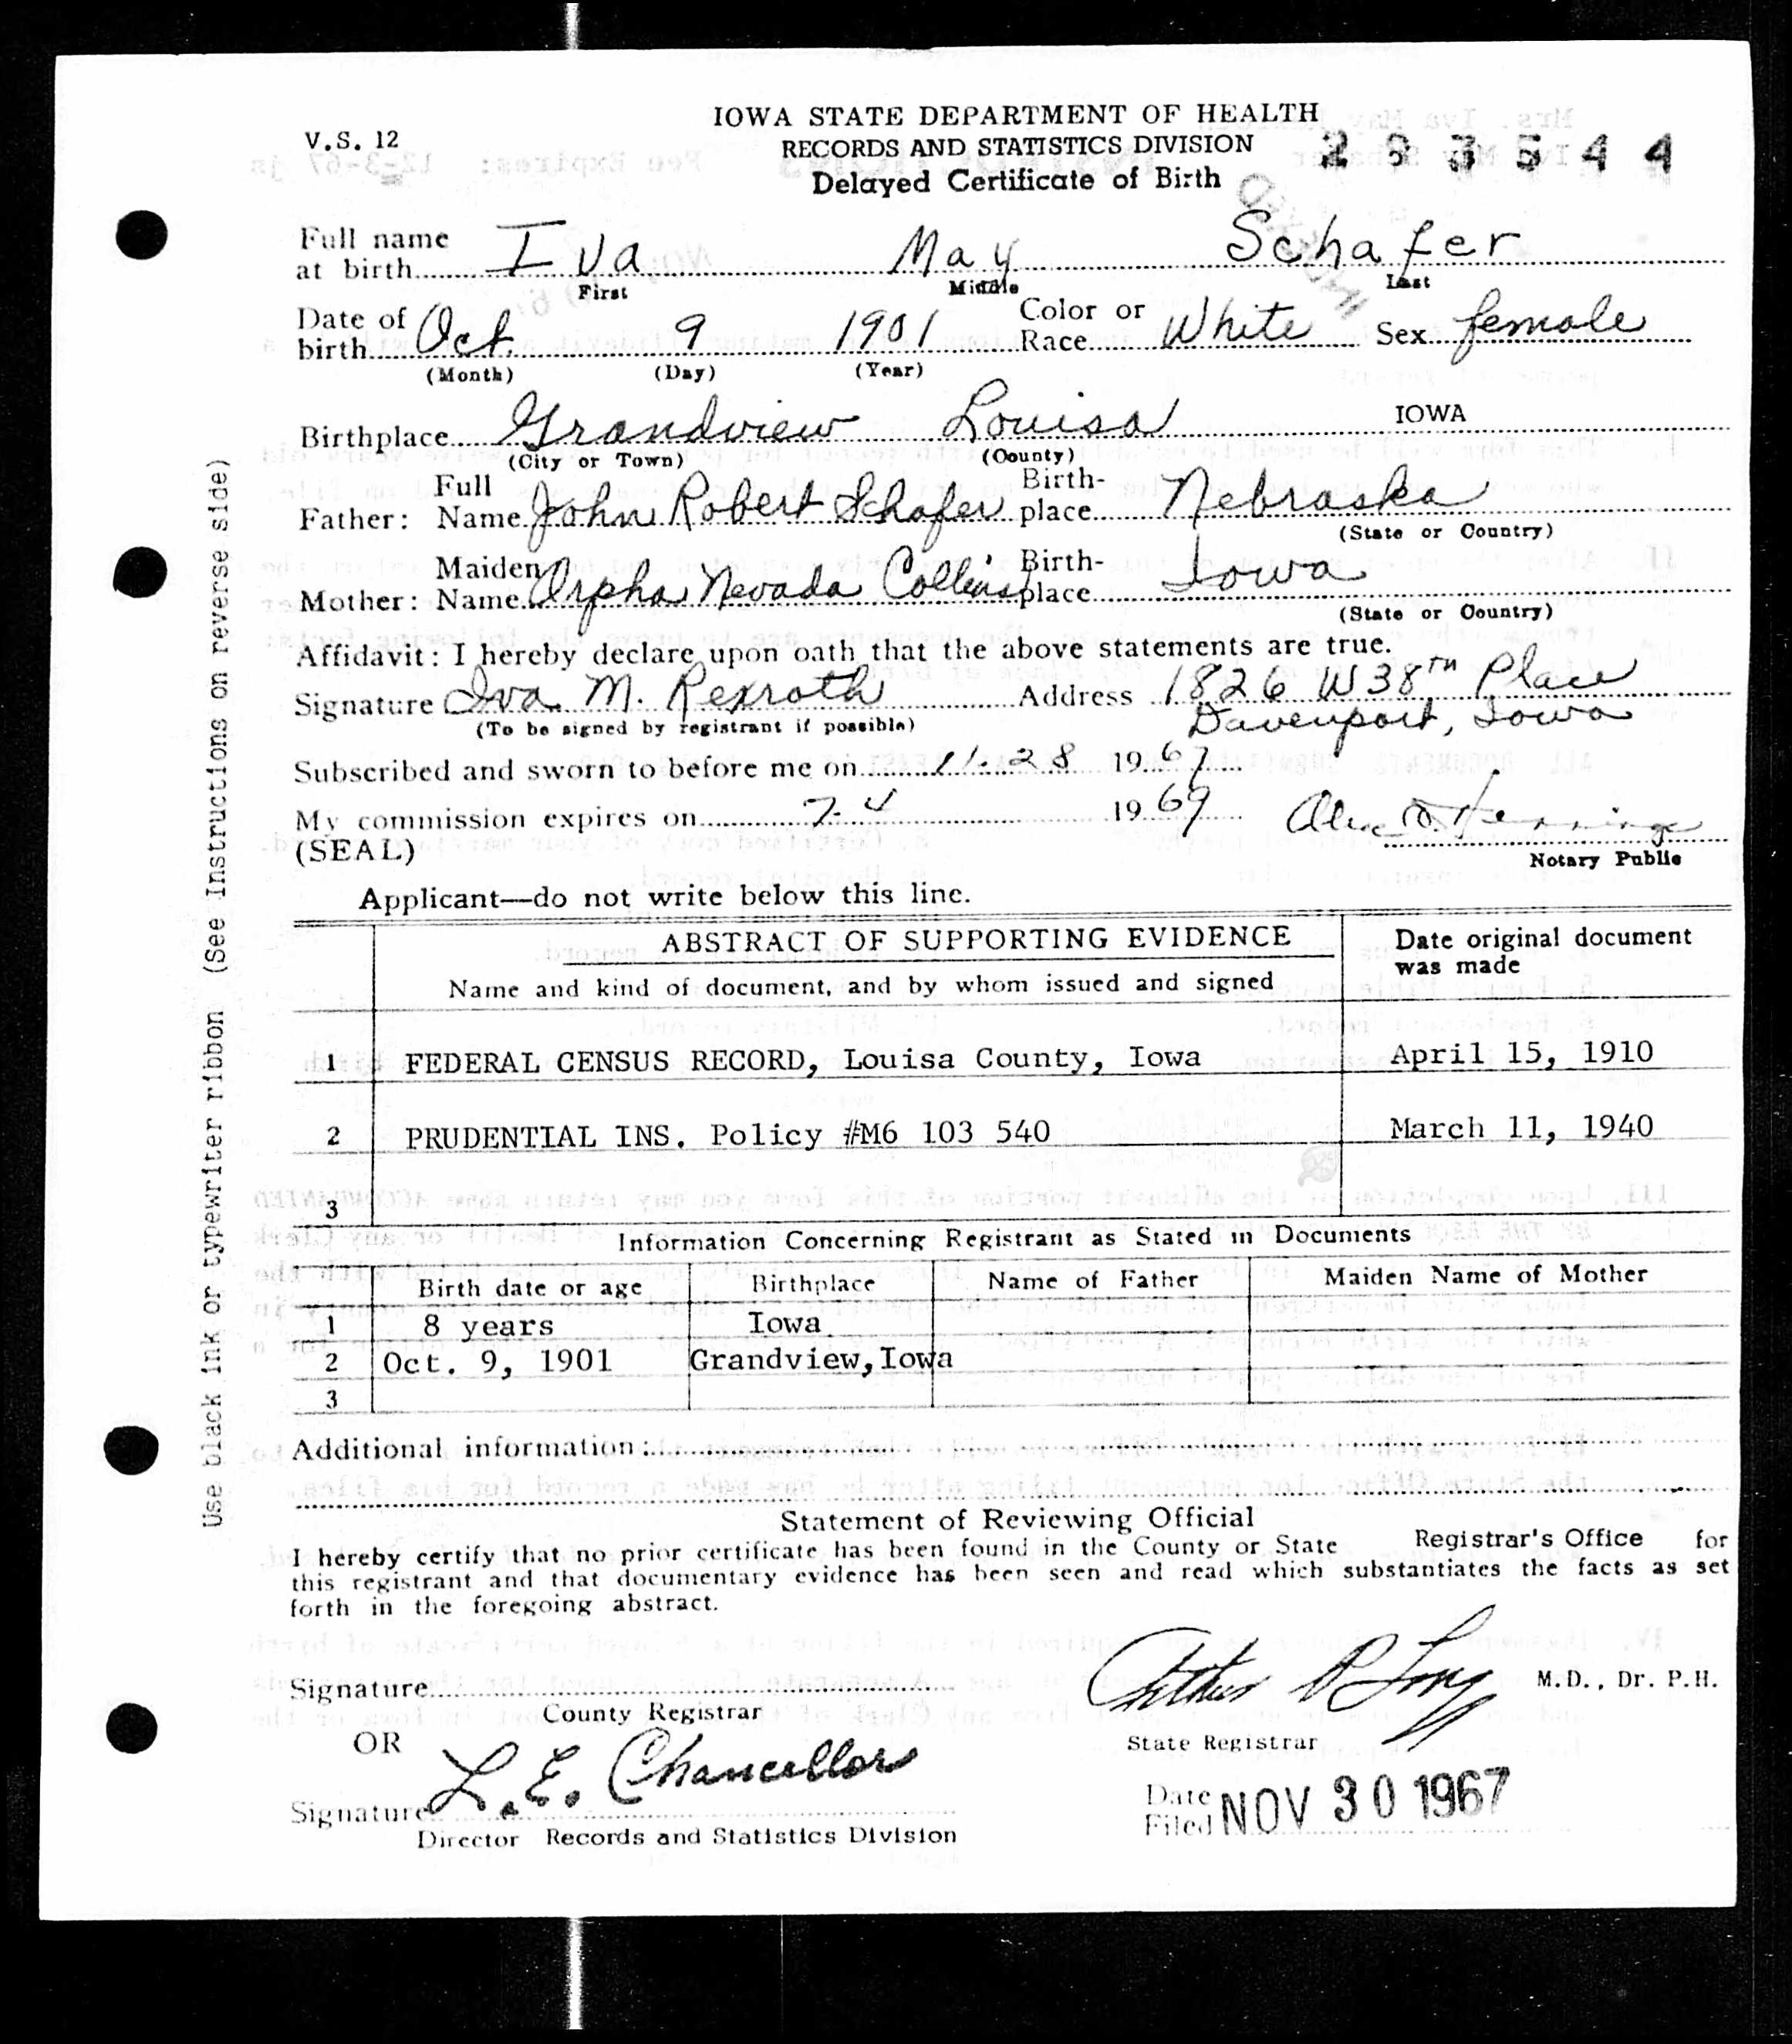 IOWA STATE DEPARTMENT OF HEALTH
V.S. 12
RECORDS AND STATISTICS DIVISION
Delayed Certificate of Birth
283544
Full name at birth Iva May Schafer
First Middle Last
Date of birth Oct. 9 1901 Color or Race White Sex female
(Month) (Day) (Year)
Birthplace Grandview Louisa IOWA
(City or Town) (County)
Father: Full Name John Robert Schafer Birthplace Nebraska
(State or Country)
Mother: Maiden Name Orpha Nevada Collins Birthplace Iowa
(State or Country)
Affidavit: I hereby declare upon oath that the above statements are true.
Signature Iva M. Rexroth Address 1826 W 38TH Place
(To be signed by registrant if possible) Davenport, Iowa
Subscribed and sworn to before me on 11-28 1967
My commission expires on 7-4 1969
(SEAL) Notary Public
Applicant—do not write below this line.
ABSTRACT OF SUPPORTING EVIDENCE
Name and kind of document, and by whom issued and signed
Date original document was made
1 FEDERAL CENSUS RECORD, Louisa County, Iowa April 15, 1910
2 PRUDENTIAL INS. Policy #M6 103 540 March 11, 1940
3
Information Concerning Registrant as Stated in Documents
Birth date or age Birthplace Name of Father Maiden Name of Mother
1 8 years Iowa
2 Oct. 9, 1901 Grandview, Iowa
3
Additional information:
Statement of Reviewing Official
I hereby certify that no prior certificate has been found in the County or State Registrar's Office for
this registrant and that documentary evidence has been seen and read which substantiates the facts as set
forth in the foregoing abstract.
Signature
County Registrar
M.D., Dr. P.H.
State Registrar
OR
Signature L. E. Chancellor
Director Records and Statistics Division
Date Filed NOV 30 1967
Use black ink or typewriter ribbon (See Instructions on reverse side)